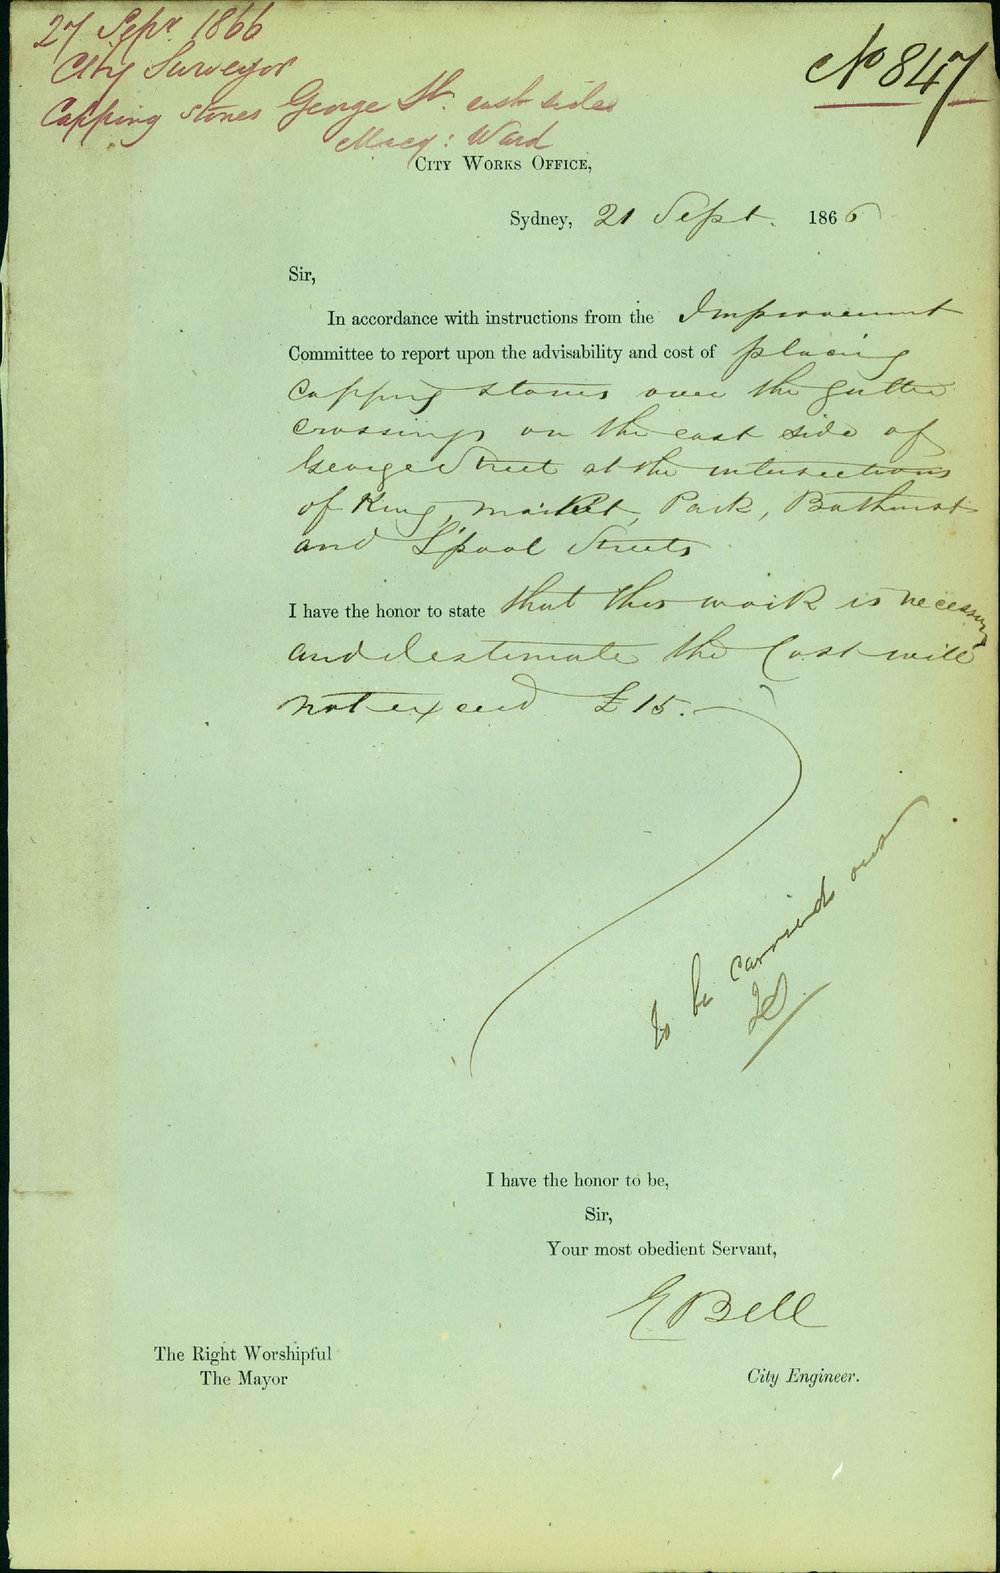 27 Sepr. 1866
City Surveyor
Capping Stones George St. east side
Macq: Ward
No 847
CITY WORKS OFFICE,
Sydney, 21 Sept. 1866
Sir,
In accordance with instructions from the Improvement
Committee to report upon the advisability and cost of placing
capping stones over the gutter
crossings on the east side of
George Street at the intersections
of King, Market, Park, Bathurst
and L'pool Streets
I have the honor to state that this work is necessary
and I estimate the Cost will
not exceed £15.
to be carried out
I have the honor to be,
Sir,
Your most obedient Servant,
E Bell
The Right Worshipful
The Mayor
City Engineer.